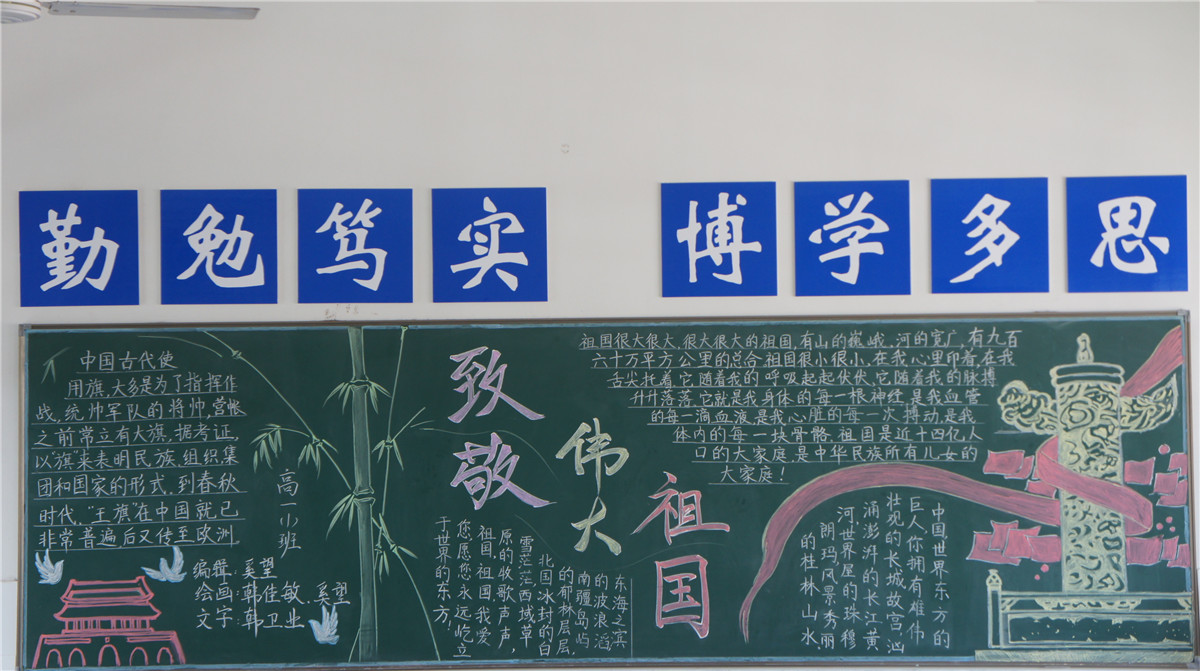 勤勉笃实 博学多思
中国古代使
用旗，大多是为了指挥作
战，统帅军队的将帅，营帐
之前常立有大旗，据考证，
以“旗”来表明民族、组织、集
团和国家的形式，到春秋
时代，“王旗”在中国就已
非常普遍后又传至欧洲。
高一小班
编辑：奚望
绘画：韩佳敏、奚望
文字：韩卫业
致敬
伟大
祖国
祖国很大很大，很大很大的祖国，有山的巍峨，河的宽广，有九百
六十万平方公里的总合，祖国很小很小，在我心里印着，在我
舌尖托着，它随着我的呼吸起起伏伏，它随着我的脉搏
升升落落，它就是我身体的每一根神经，是我血管
的每一滴血液，是我心脏的每一次搏动，是我
体内的每一块骨骼，祖国是近十四亿人
口的大家庭，是中华民族所有儿女的
大家庭！
东海之滨
的波浪滔
南疆岛屿
的郁林层层，
北国冰封的白
雪茫茫西域草
原的牧歌声声，
祖国，祖国我爱
您，愿您永远屹立
于世界的东方，
中国，世界东方的
巨人，你拥有雄伟
壮观的长城故宫，汹
涌澎湃的长江黄
河，世界屋的珠穆
朗玛风景秀丽
的桂林山水，